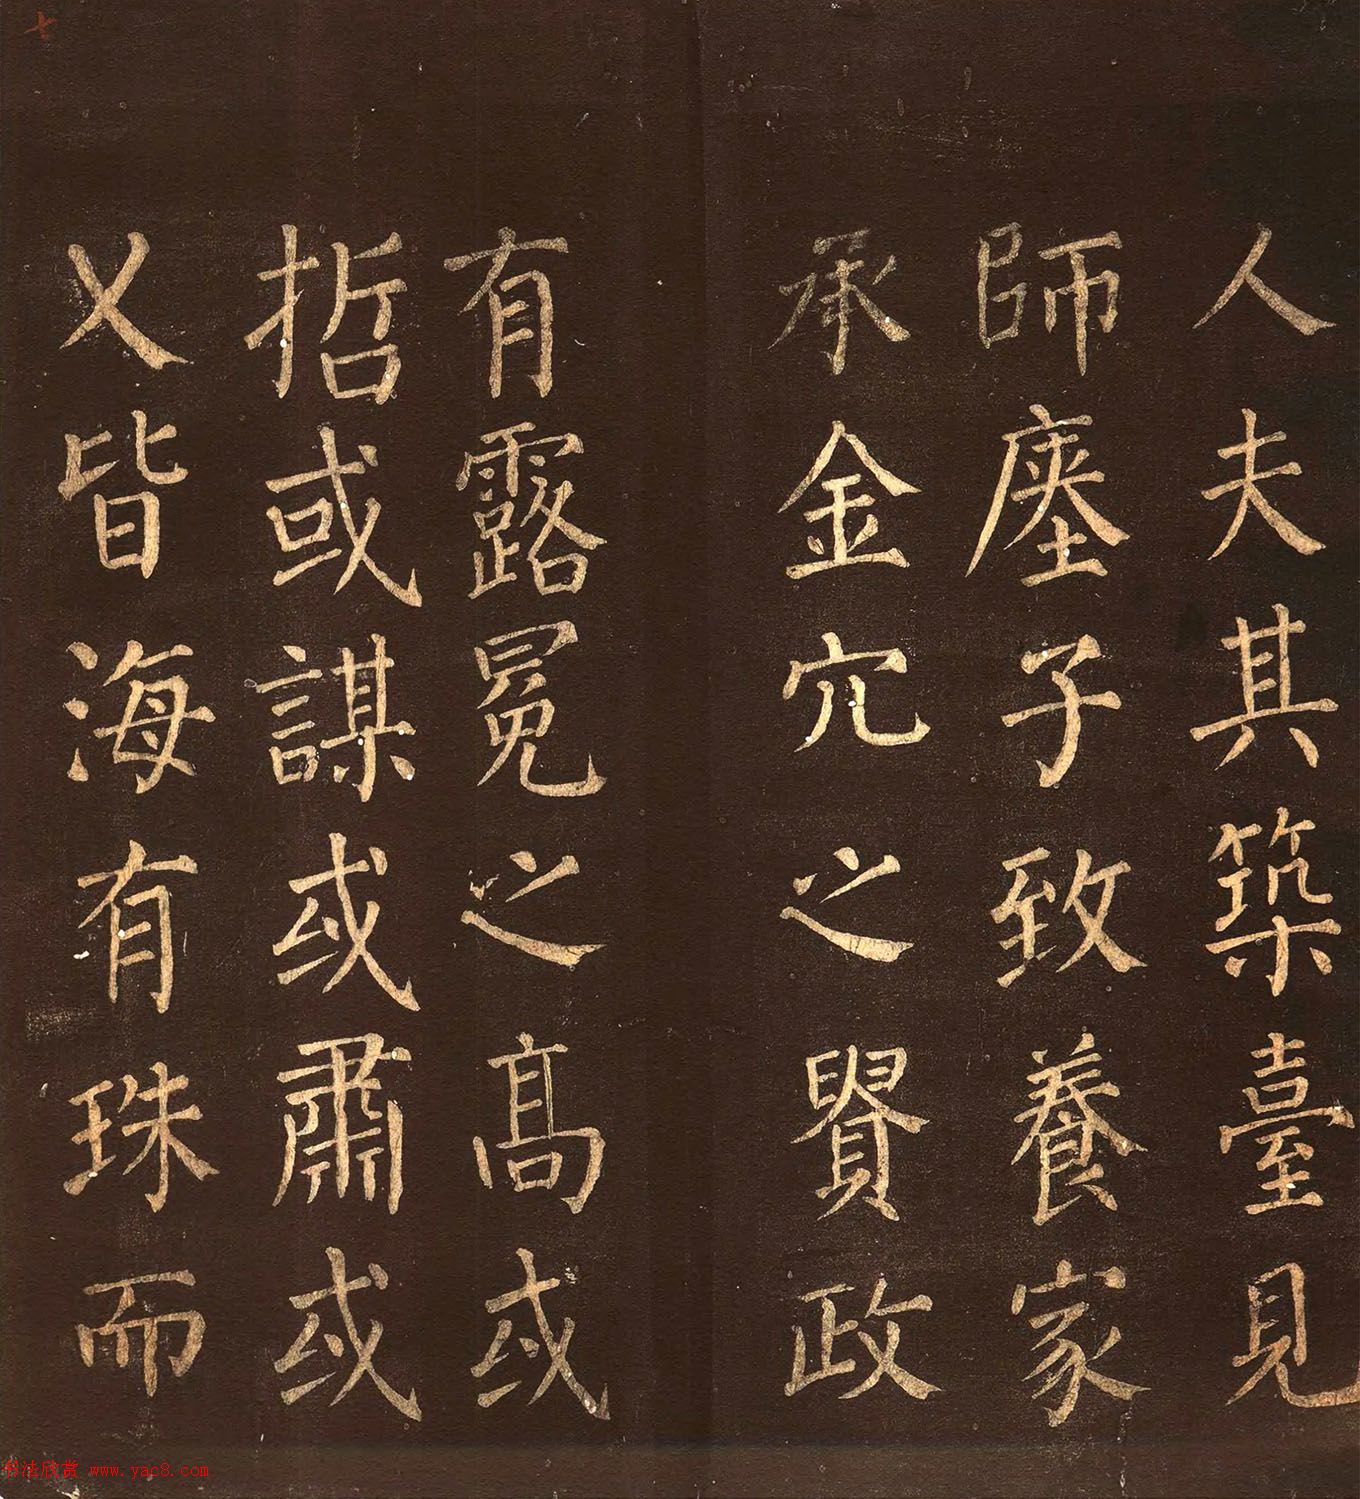 人夫其築臺見
師塵子致養家
承金穴之賢政
有露冕之高或
哲或謀或肅或
乂皆海有珠而
书法欣赏 www.yac8.com